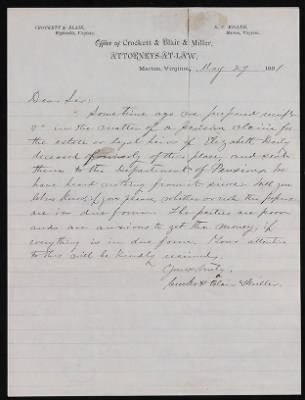 CROCKETT & BLAIR,
Wytheville, Virginia.
S. C. MILLER,
Marion, Virginia.
Office of Crockett & Blair & Miller,
ATTORNEYS-AT-LAW,
Marion, Virginia, May 27 1881
Dear Sir:
Sometime ago we prepared
in the matter of a Pension claim for
the estate or legal heirs of Elizabeth
deceased formerly of this place, and sent
them to the Department of Pensions &
have heard nothing from it since. Will you
let us know, if you please, whether or not the papers
are in due form. The parties are poor
and are anxious to get the money, if
everything is in due form. Your attention
to this will be kindly received.
Yours truly,
Crockett Blair & Miller.